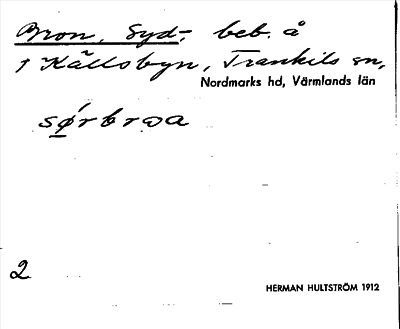 Bron, Syd-, beb. å
1 Källsbyn, Trankils sn,
Nordmarks hd, Värmlands län
sǿrbrɷa
2
HERMAN HULTSTRÖM 1912